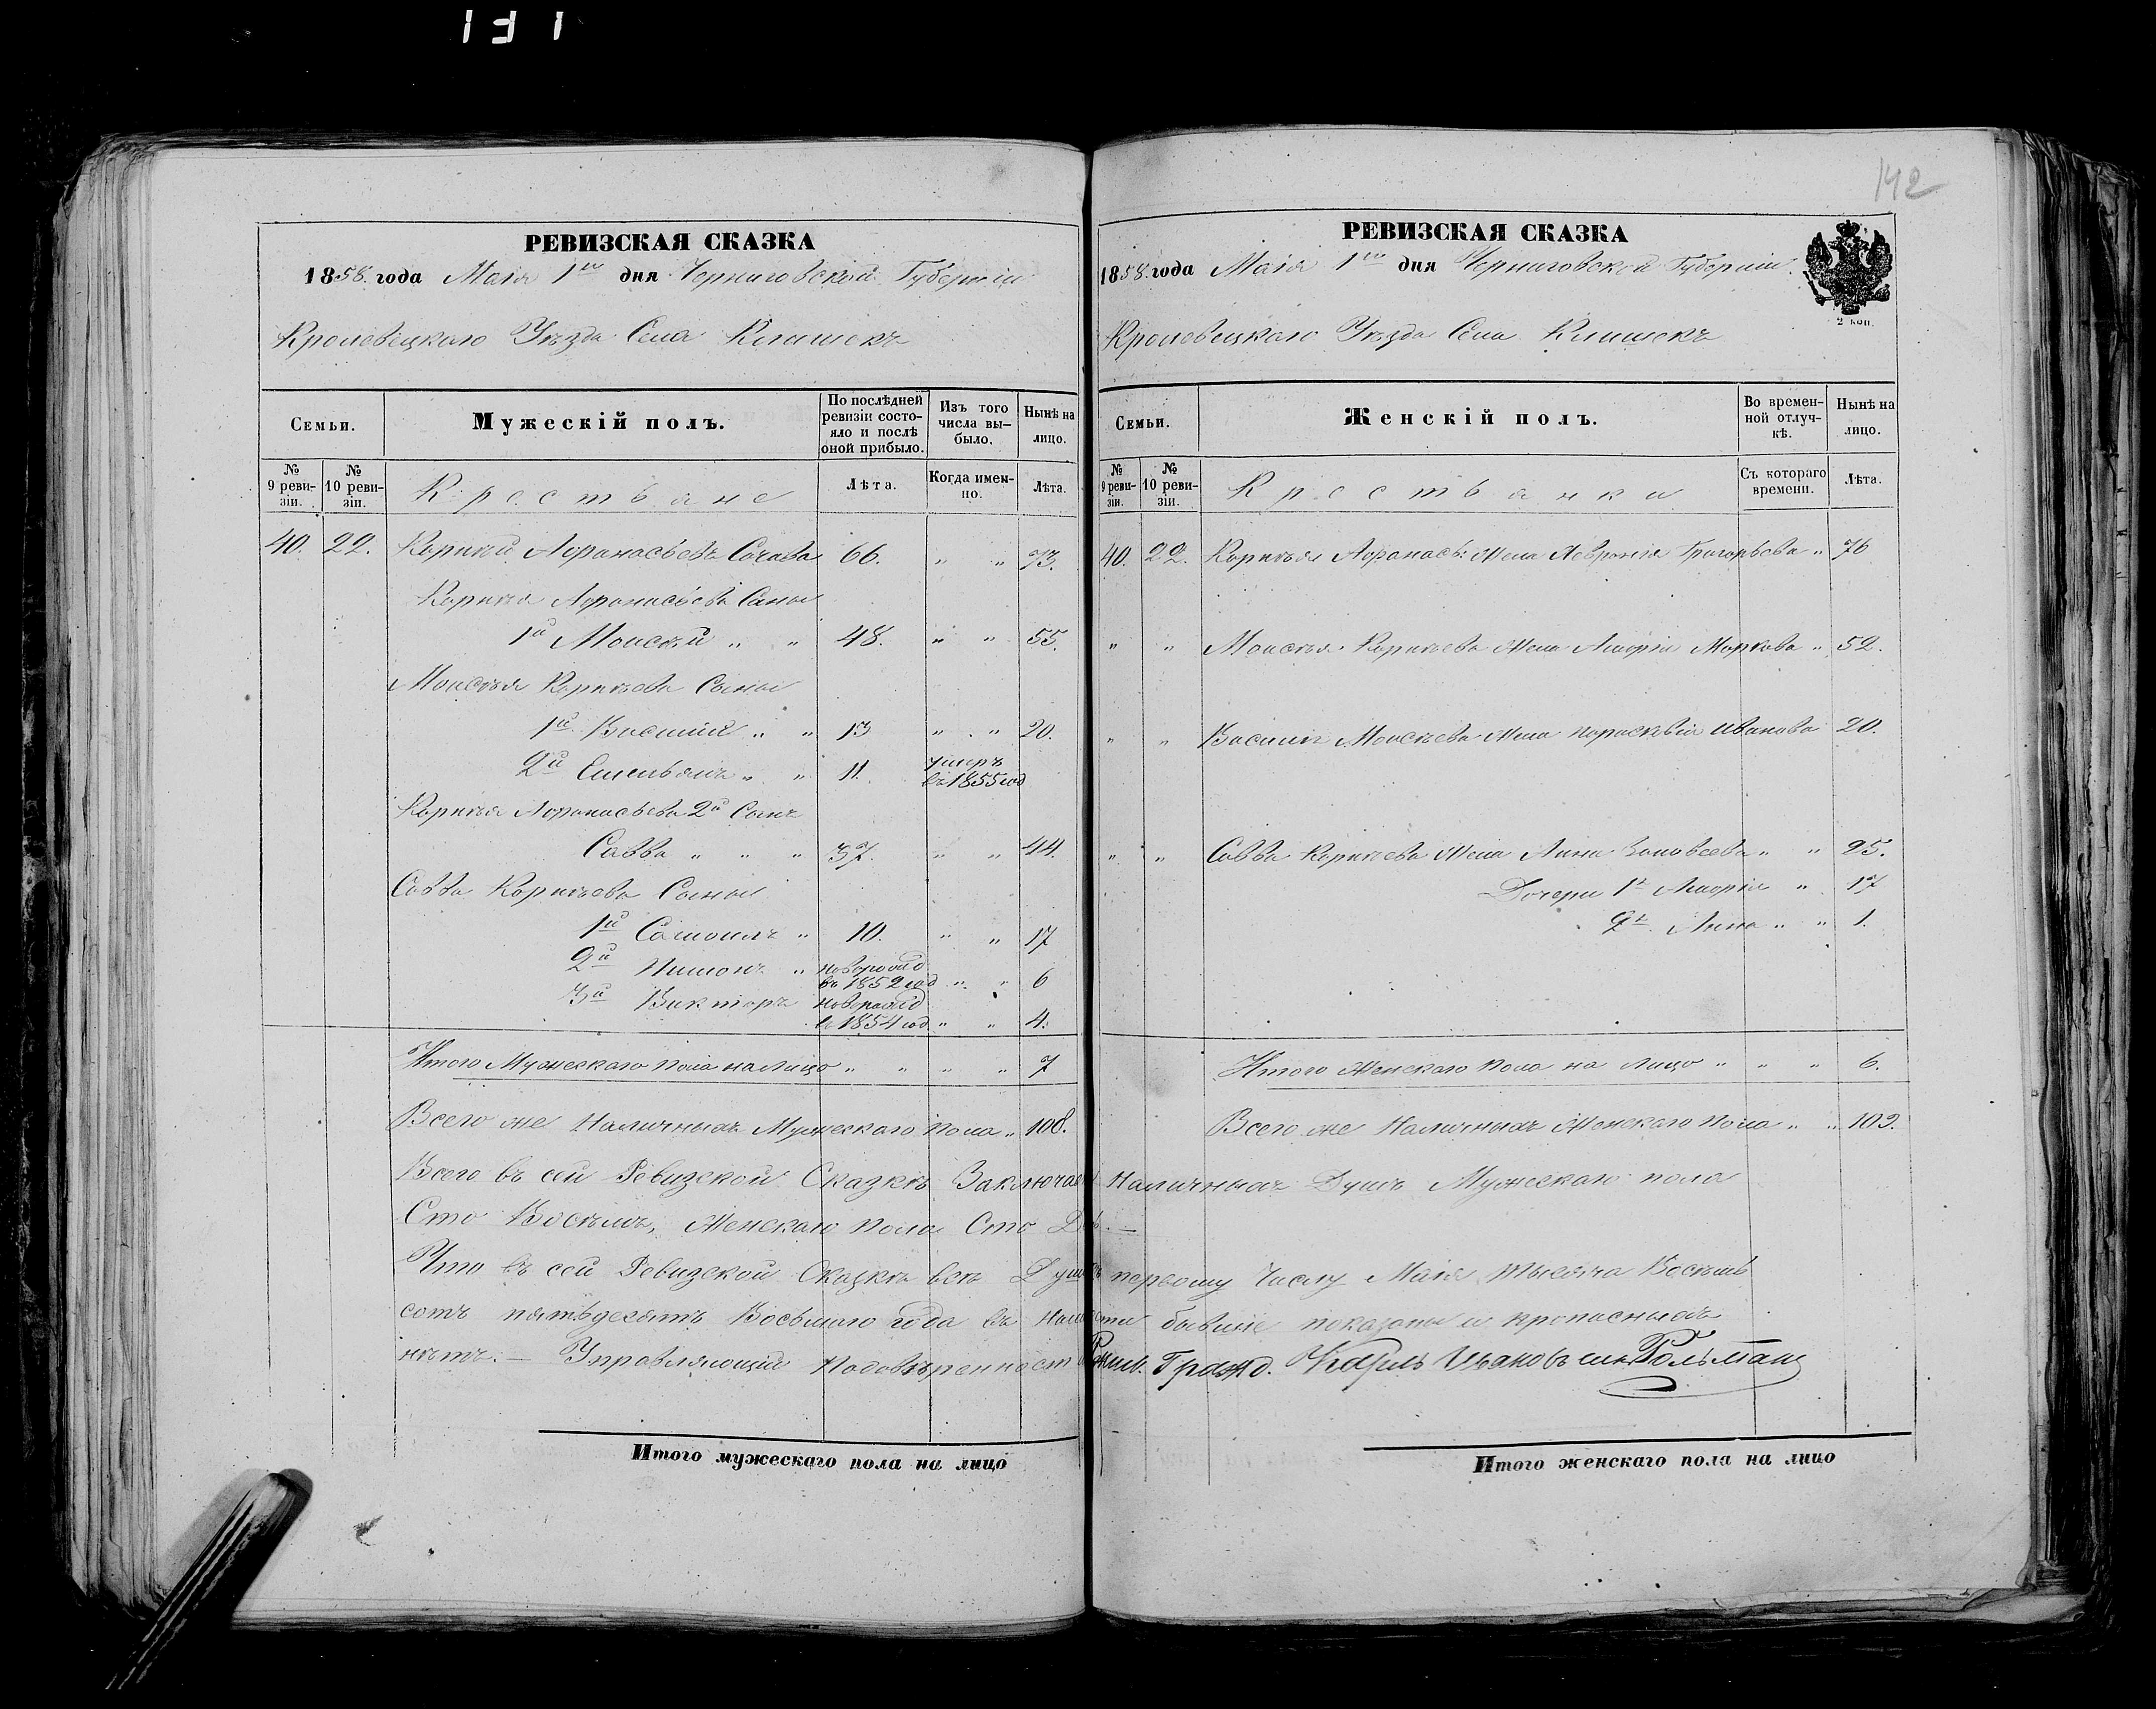 131
142
РЕВИЗСКАЯ СКАЗКА
1858 года Маія 1го дня Черниговской Губерніи
Кролевецкаго Уѣзда Села Клишекъ
Семьи.
Мужескій полъ.
По послѣдней ревизіи состояло и послѣ оной прибыло.
Изъ того числа выбыло.
Нынѣ на лицо.
№ 9 ревизіи.
№ 10 ревизіи.
Крестьяне
Лѣта.
Когда именно.
Лѣта.
40. 22. Корнѣй Афонасьевъ 66. " " 73.
Корнѣя Афонасьева Сыны
1й Моисѣй " " 48. " " 55.
Моисѣя Корнѣева Сыны
1й Василій " " 13 " " 20.
2й Емельянъ " " 11. умеръ въ 1855 год
Корнѣя Афонасьева 2й Сынъ
Савва " " " 37. " " 44.
Савва Корнѣева Сыны
1й Самоилъ " 10. " " 17
2й Пимонъ " новорожд въ 1852 год " " 6
3й Викторъ новорожд въ 1854 год " " 4.
Итого Мужескаго пола на лицо " " " " 7
Всего же Наличныхъ Мужескаго пола " 108.
РЕВИЗСКАЯ СКАЗКА
1858 года Маія 1го дня Черниговской Губерніи
2 коп.
Кролевецкаго Уѣзда Села Клишекъ
Семьи.
Женскій полъ.
Во временной отлучкѣ.
Нынѣ на лицо.
№ 9 ревизіи.
№ 10 ревизіи.
Крестьянки
Съ котораго времени.
Лѣта.
40. 22. Корнѣя Афонасьв: Жена Явронія Григорьева " 76
" " Моисѣя Корнѣева Жена Маріа Маркова " 52.
" " Василія Моисѣева Жена Параскѣвія Иванова 20.
" " Савва Корнѣева Жена Анна " " 25.
Дочери 1я Марія " 17
2я Анна " " 1.
Итого Женскаго пола на лицо " " " 6.
Всего же Наличныхъ Женскаго пола " " 102.
Всего въ сей Ревизской Сказкѣ Заключает Наличныхъ Душъ Мужескаго пола
Сто Восѣмъ, Женскаго пола Сто Двѣ. —
Что въ сей Ревизской Сказкѣ всѣ Души къ первому Числу Маія Тысяча Восѣмь
сотъ пятьдесятъ Восьмаго года въ наличности бывшіе показаны и прописныхъ
нѣтъ. — Управляющій по довѣренности Гражд. Карлъ Ивановъ сынъ Гольманъ
Итого мужескаго пола на лицо
Итого женскаго пола на лицо